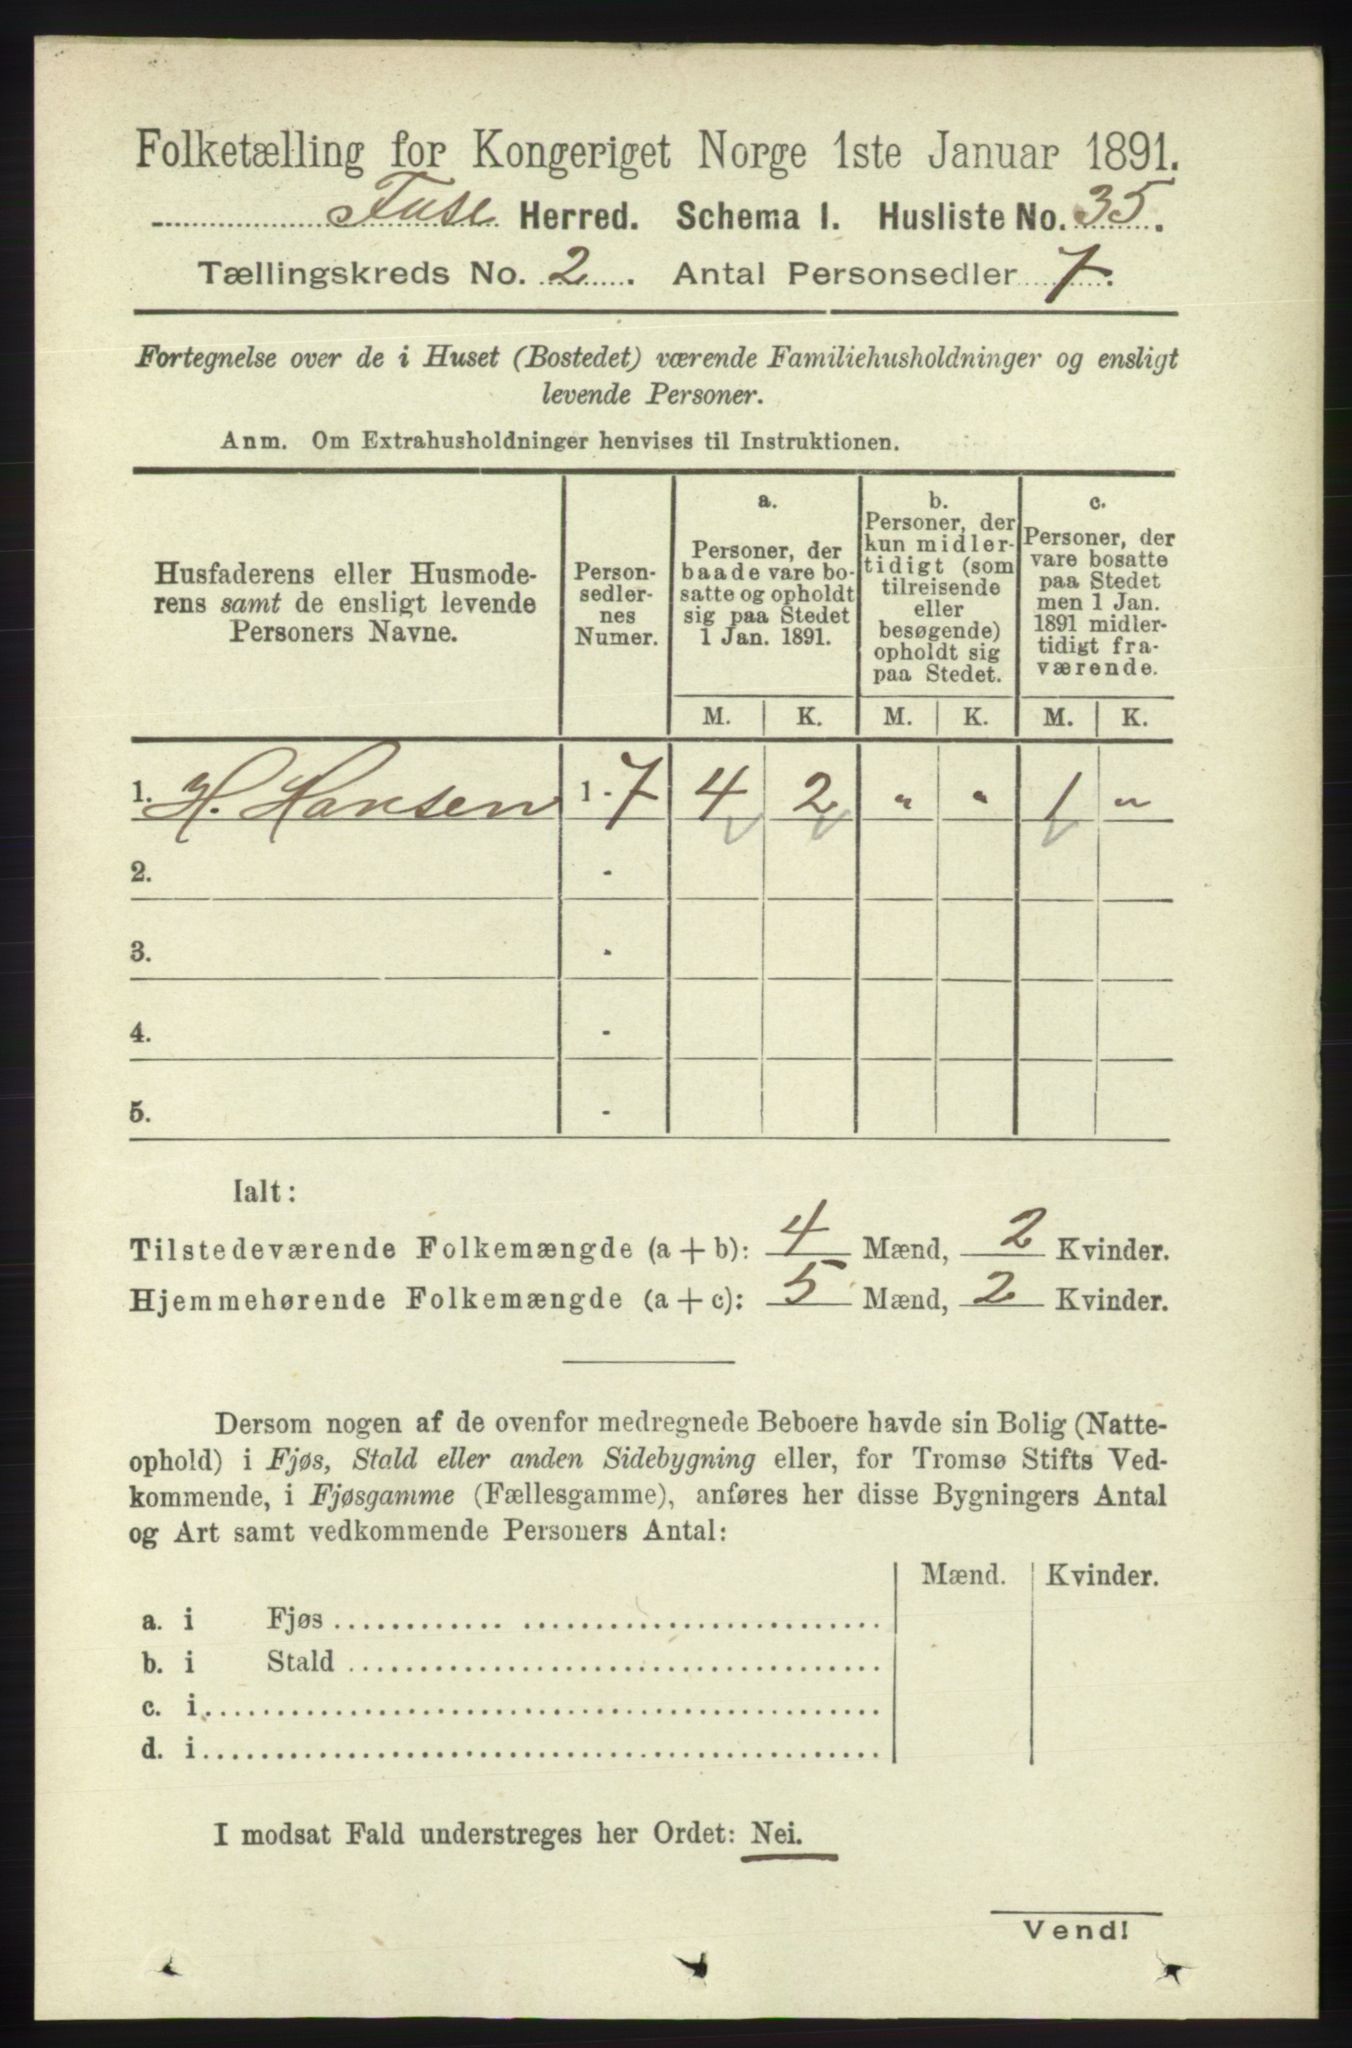 Folketælling for Kongeriget Norge 1ste Januar 1891.
Fuse Herred. Schema I. Husliste No. 35.
Tællingskreds No. 2. Antal Personsedler 7.
Fortegnelse over de i Huset (Bostedet) værende Familiehusholdninger og ensligt
levende Personer.
Anm. Om Extrahusholdninger henvises til Instruktionen.
Husfaderens eller Husmode-
rens samt de ensligt levende
Personers Navne.
Person-
sedler-
nes
Numer.
a.
Personer, der
baade vare bo-
satte og opholdt
sig paa Stedet
1 Jan. 1891.
b.
Personer, der
kun midler-
tidigt (som
tilreisende
eller
besøgende)
opholdt sig
paa Stedet.
c.
Personer, der
vare bosatte
paa Stedet
men 1 Jan.
1891 midler-
tidigt fra-
værende.
M. K. M. K. M. K.
1. H. Hansen 1 - 7 4 2 " " 1 "
2. -
3. -
4. -
5. -
Ialt:
Tilstedeværende Folkemængde (a + b): 4 Mænd, 2 Kvinder.
Hjemmehørende Folkemængde (a + c): 5 Mænd, 2 Kvinder.
Dersom nogen af de ovenfor medregnede Beboere havde sin Bolig (Natte-
ophold) i Fjøs, Stald eller anden Sidebygning eller, for Tromsø Stifts Ved-
kommende, i Fjøsgamme (Fællesgamme), anføres her disse Bygningers Antal
og Art samt vedkommende Personers Antal:
Mænd. Kvinder.
a. i Fjøs
b. i Stald
c. i
d. i
I modsat Fald understreges her Ordet: Nei.
Vend!